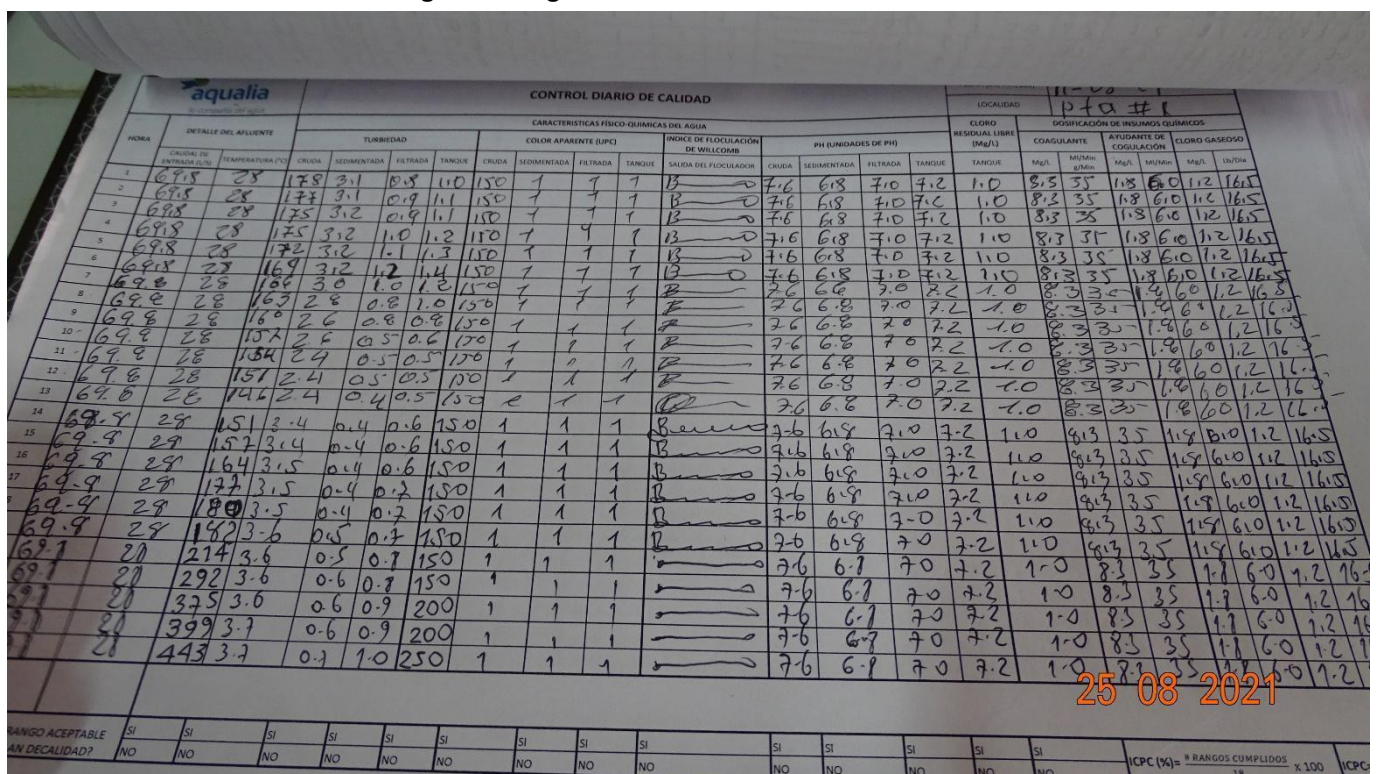 aqualia
CONTROL DIARIO DE CALIDAD
LOCALIDAD Pta #1
HORA DETALLE DEL AFLUENTE CARACTERISTICAS FÍSICO-QUIMICAS DEL AGUA CLORO RESIDUAL LIBRE (Mg/L) DOSIFICACIÓN DE INSUMOS QUÍMICOS
TURBIEDAD COLOR APARENTE (UPC) INDICE DE FLOCULACIÓN DE WILLCOMB PH (UNIDADES DE PH) COAGULANTE AYUDANTE DE COGULACIÓN CLORO GASEOSO
CAUDAL DE ENTRADA (L/S) TEMPERATURA (°C) CRUDA SEDIMENTADA FILTRADA TANQUE CRUDA SEDIMENTADA FILTRADA TANQUE SALIDA DEL FLOCULADOR CRUDA SEDIMENTADA FILTRADA TANQUE TANQUE Mg/L Ml/Min g/Min Mg/L Ml/Min Mg/L Lb/Dia
1 69.8 28 178 3.1 0.8 1.0 150 1 1 1 B 7.6 6.8 7.0 7.2 1.0 8.3 35 1.8 6.0 1.2 16.5
2 69.8 28 177 3.1 0.9 1.1 150 1 1 1 B 7.6 6.8 7.0 7.2 1.0 8.3 35 1.8 6.0 1.2 16.5
3 69.8 28 175 3.2 0.9 1.1 150 1 1 1 B 7.6 6.8 7.0 7.2 1.0 8.3 35 1.8 6.0 1.2 16.5
4 69.8 28 175 3.2 1.0 1.2 150 1 1 1 B 7.6 6.8 7.0 7.2 1.0 8.3 35 1.8 6.0 1.2 16.5
5 69.8 28 172 3.2 1.1 1.3 150 1 1 1 B 7.6 6.8 7.0 7.2 1.0 8.3 35 1.8 6.0 1.2 16.5
6 69.8 28 169 3.2 1.2 1.4 150 1 1 1 B 7.6 6.8 7.0 7.2 1.0 8.3 35 1.8 6.0 1.2 16.5
7 69.8 28 3.0 1.0 1.2 150 1 1 1 B 7.6 6.8 7.0 7.2 1.0 8.3 35 1.8 60 1.2 16.5
8 69.8 28 163 2.8 0.8 1.0 150 1 1 1 B 7.6 6.8 7.0 7.2 1.0 8.3 35 1.8 60 1.2 16.5
9 69.8 28 160 2.6 0.8 0.8 150 1 1 1 B 7.6 6.8 7.0 7.2 1.0 8.3 35 1.8 60 1.2 16.5
10 69.8 28 157 2.6 0.5 0.6 150 1 1 1 B 7.6 6.8 7.0 7.2 1.0 8.3 35 1.8 60 1.2 16.5
11 69.8 28 154 2.4 0.5 0.5 150 1 1 1 B 7.6 6.8 7.0 7.2 1.0 8.3 35 1.8 60 1.2 16.5
12 69.8 28 151 2.4 0.5 0.5 150 1 1 1 B 7.6 6.8 7.0 7.2 1.0 8.3 35 1.8 60 1.2 16.5
13 69.8 28 146 2.4 0.4 0.5 150 1 1 7.6 6.8 7.0 7.2 1.0 8.3 35 1.8 60 1.2
14 69.8 28 151 3.4 0.4 0.6 150 1 1 1 B 7.6 6.8 7.0 7.2 1.0 8.3 35 1.8 6.0 1.2 16.5
15 69.8 28 157 3.4 0.4 0.6 150 1 1 1 B 7.6 6.8 7.0 7.2 1.0 8.3 35 1.8 6.0 1.2 16.5
16 69.8 28 164 3.5 0.4 0.6 150 1 1 1 B 7.6 6.8 7.0 7.2 1.0 8.3 35 1.8 6.0 1.2 16.5
17 69.8 28 177 3.5 0.4 0.7 150 1 1 1 B 7.6 6.8 7.0 7.2 1.0 8.3 35 1.8 6.0 1.2 16.5
69.8 28 180 3.5 0.4 0.7 150 1 1 1 B 7.6 6.8 7.0 7.2 1.0 8.3 35 1.8 6.0 1.2 16.5
69.8 28 182 3.6 0.5 0.7 150 1 1 1 B 7.6 6.8 7.0 7.2 1.0 8.3 35 1.8 6.0 1.2 16.5
69.8 28 214 3.6 0.5 0.8 150 1 1 1 7.6 6.8 7.0 7.2 1.0 8.3 35 1.8 6.0 1.2 16.
28 292 3.6 0.6 0.8 150 1 1 1 7.6 6.8 7.0 7.2 1.0 8.3 35 1.8 6.0 1.2 16
28 375 3.6 0.6 0.9 200 1 1 1 7.6 6.8 7.0 7.2 1.0 8.3 35 1.8 6.0 1.2 16
28 399 3.7 0.6 0.9 200 1 1 1 7.6 6.8 7.0 7.2 1.0 8.3 35 1.8 6.0 1.2
28 443 3.7 0.7 1.0 250 1 1 1 7.6 6.8 7.0 7.2 1.0 8.3 35 1.8 6.0 1.2
25 08 2021
RANGO ACEPTABLE SI SI SI SI SI SI SI SI SI SI SI SI SI SI
AN DECALIDAD? NO NO NO NO NO NO NO NO NO NO NO NO NO NO
ICPC (%)= # RANGOS CUMPLIDOS x 100 ICPC=